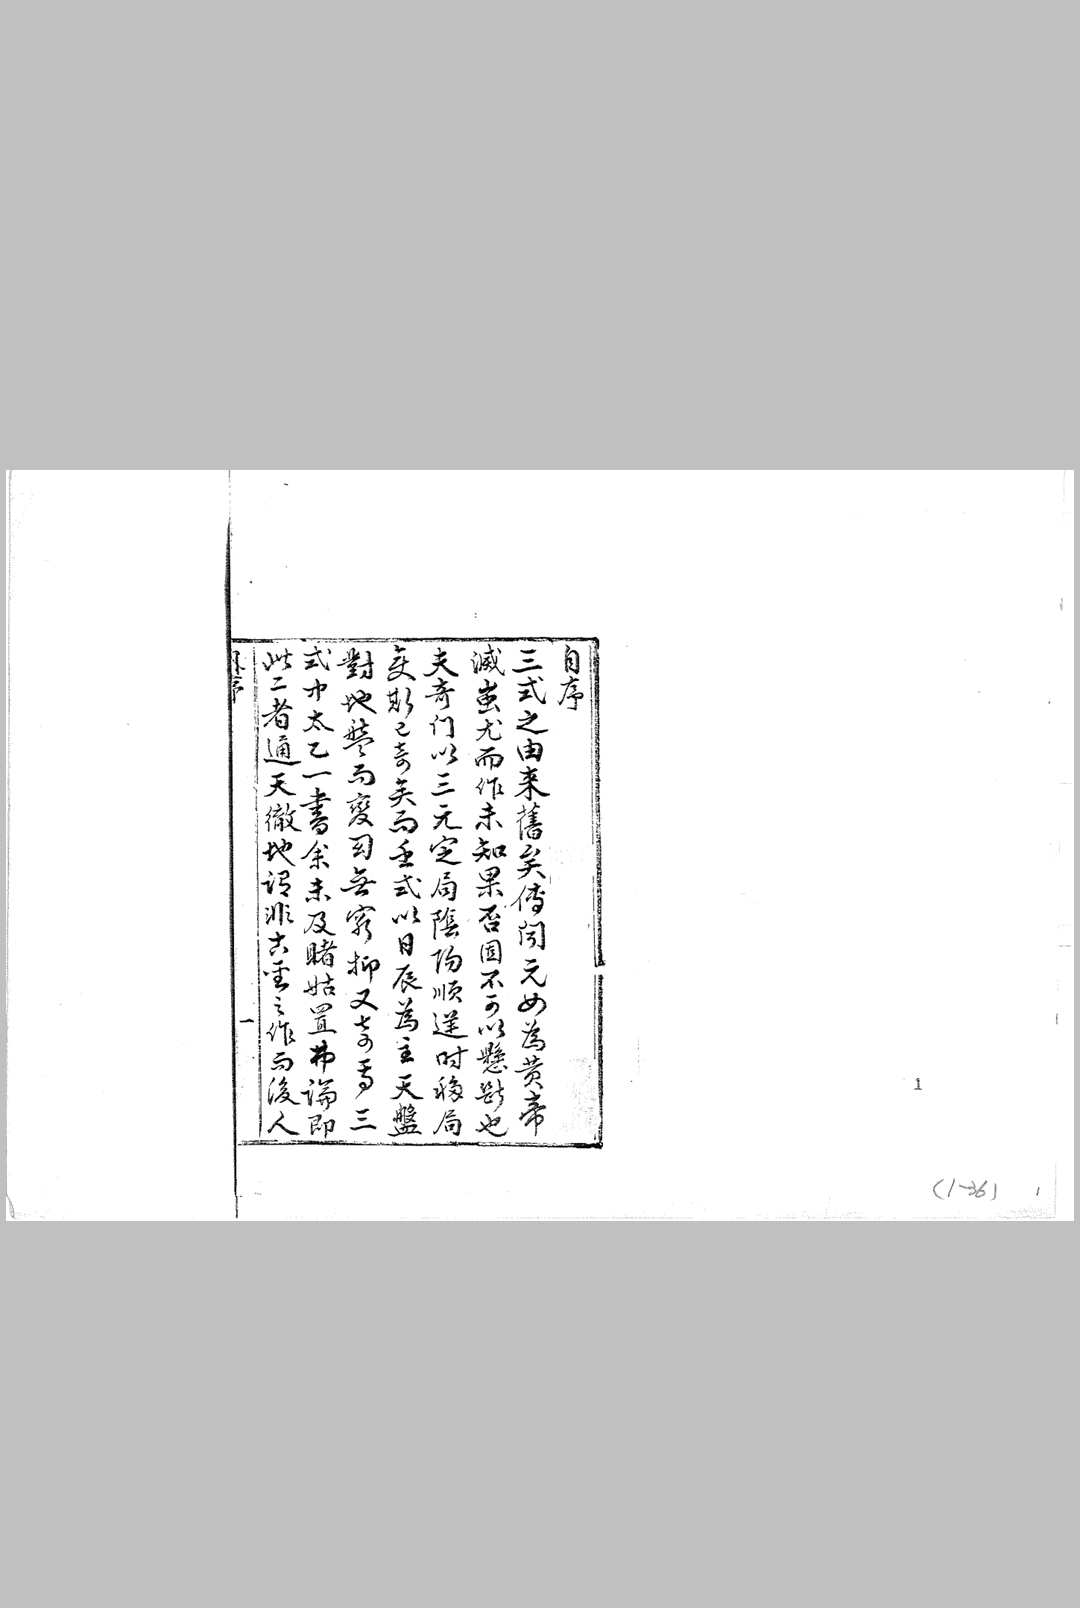 自序
三式之由来舊矣傳聞元女為黄帝
滅蚩尤而作未知果否固不可以懸斷也
夫奇门以三元定局陰陽順逆时移局
變斯已奇矣而壬式以日辰為主天盤
對地盤而變幻無窮抑又奇焉三
式中太乙一書余未及睹姑置弗論即
此二者通天徹地謂非古聖之作而後人
序
一
1
(1-36)
1